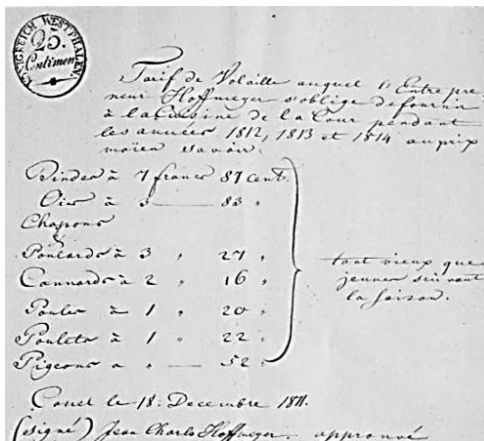 KÖNIGREICH WESTPHALEN.
25.
Centimen
Tarif de Volaille auquel l'Entrepre-
neur Hoffmeyer s'oblige de fournir
à la Cuisine de la Cour pendant
les années 1812, 1813 et 1814 au prix
moien savoir.
Dindes à 7 francs 87 cent.
Oies à 3 — 83 "
Chapons
&
Poulards à 3 " 27 "
Cannards à 2 " 16 "
Poules à 1 " 20 "
Poulets à 1 " 22 "
Pigeons a " — 52 "
tant vieux que
jeunes suivant
la saison.
Cassel le 18. Decembre 1811.
(signé) Jean Charles Hoffmeyer. approuvé